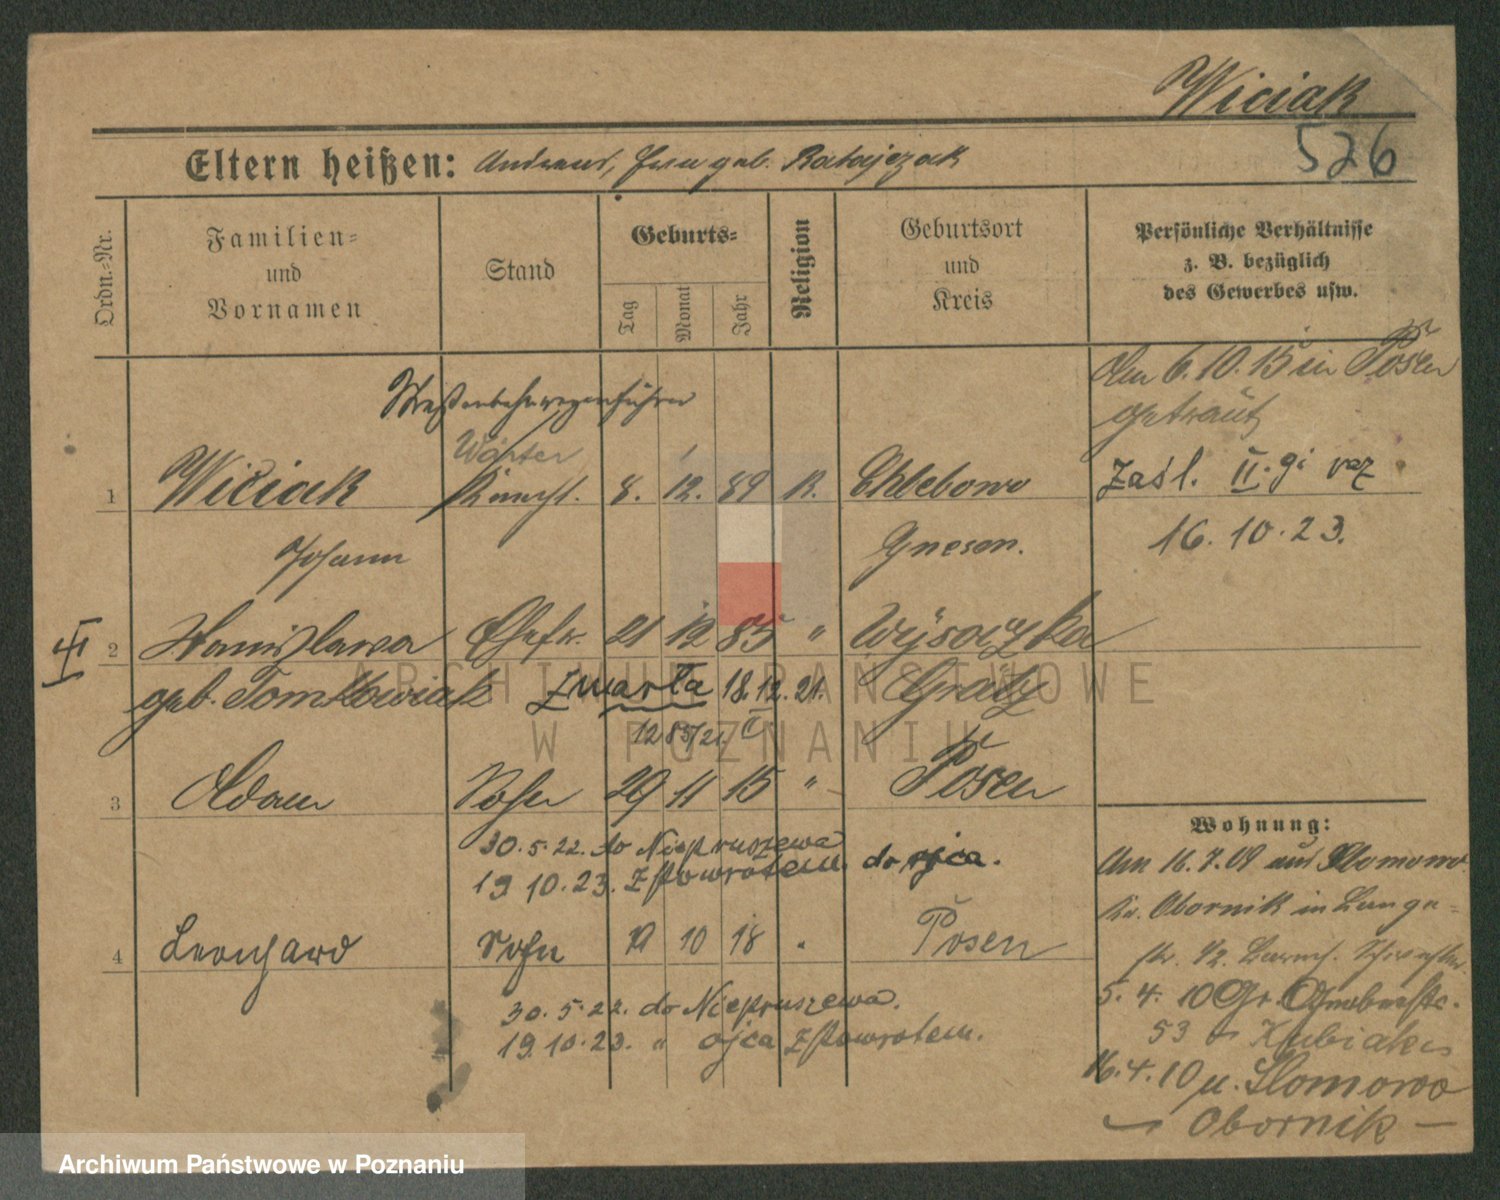 Wiciak
526
Eltern heißen: Andreas, Frau geb. Ratajczak
Ordn.-Nr.
Familien-
und
Vornamen
Stand
Geburts-
Tag
Monat
Jahr
Religion
Geburtsort
und
Kreis
Persönliche Verhältnisse
z. B. bezüglich
des Gewerbes usw.
Am 6.10.15 in Posen
getraut
Straßenbahnwagenführer
Wärter
1 Wiciak Knecht. 8. 12. 89 K. Chlebowo
zaśl. II. gi raz
Johann Gnesen.
16.10.23.
2 Stanislawa Ehefr. 21 12 85 " Wysoczka
geb. Tomkowiak zmarła 18.12.21. Grätz
3 Adam Sohn 29 11 15 " Posen
30.5.22. do Niepruszewa
19 10.23. z powrotem do ojca.
4 Leonhard Sohn 10 18 " Posen
30.5.22. do Niepruszewa.
19.10.23. " ojca z powrotem.
Wohnung:
Am 16.7.09 aus Slomowo
Kr. Obornik in Lange-
str. 1/2
5.4.10 Gr.
53 Kubiak
16.4.10 n. Slomowo
Obornik
ARCHIWUM PAŃSTWOWE
W POZNANIU
Archiwum Państwowe w Poznaniu